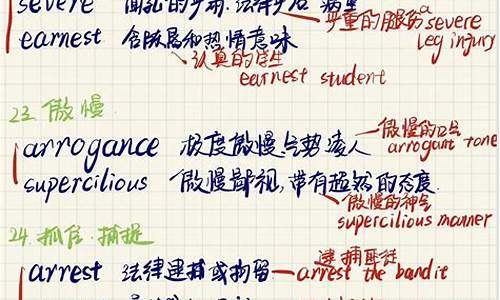 severe
严重的腿伤 a severe
leg injury
earnest 含深层和热情意味
认真的学生
earnest student
23. 傲慢
arrogance 极度傲慢,气势凌人
傲慢的口气
arrogant tone
supercilious 傲慢鄙视,带有超然的态度
傲慢的神气
supercilious manner
24. 抓住.捕捉
arrest 法律逮捕或拘留
逮捕匪徒
arrest the bandit